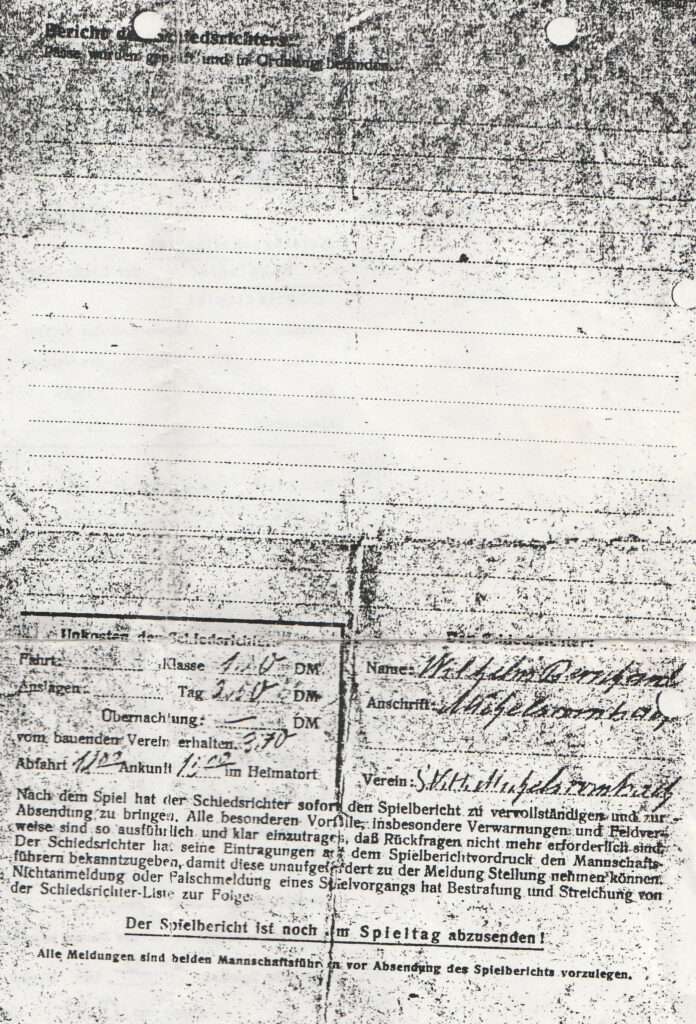 Bericht des Schiedsrichters
Pässe wurden geprüft und in Ordnung befunden
Unkosten der Schiedsrichter
Der Schiedsrichter:
Fahrt: Klasse DM
Name: Wilhelm
Auslagen: Tag DM
Anschrift: Michelsrombach
Übernachtung: — DM
vom bauenden Verein erhalten. 3,70
Abfahrt Ankunft im Heimatort
Verein: Michelsrombach
Nach dem Spiel hat der Schiedsrichter sofort den Spielbericht zu vervollständigen und zur
Absendung zu bringen. Alle besonderen Vorfälle, insbesondere Verwarnungen und Feldver-
weise sind so ausführlich und klar einzutragen, daß Rückfragen nicht mehr erforderlich sind.
Der Schiedsrichter hat seine Eintragungen auf dem Spielberichtvordruck den Mannschafts-
führern bekanntzugeben, damit diese unaufgefordert zu der Meldung Stellung nehmen können.
Nichtanmeldung oder Falschmeldung eines Spielvorgangs hat Bestrafung und Streichung von
der Schiedsrichter-Liste zur Folge.
Der Spielbericht ist noch am Spieltag abzusenden!
Alle Meldungen sind beiden Mannschaftsführern vor Absendung des Spielberichts vorzulegen.